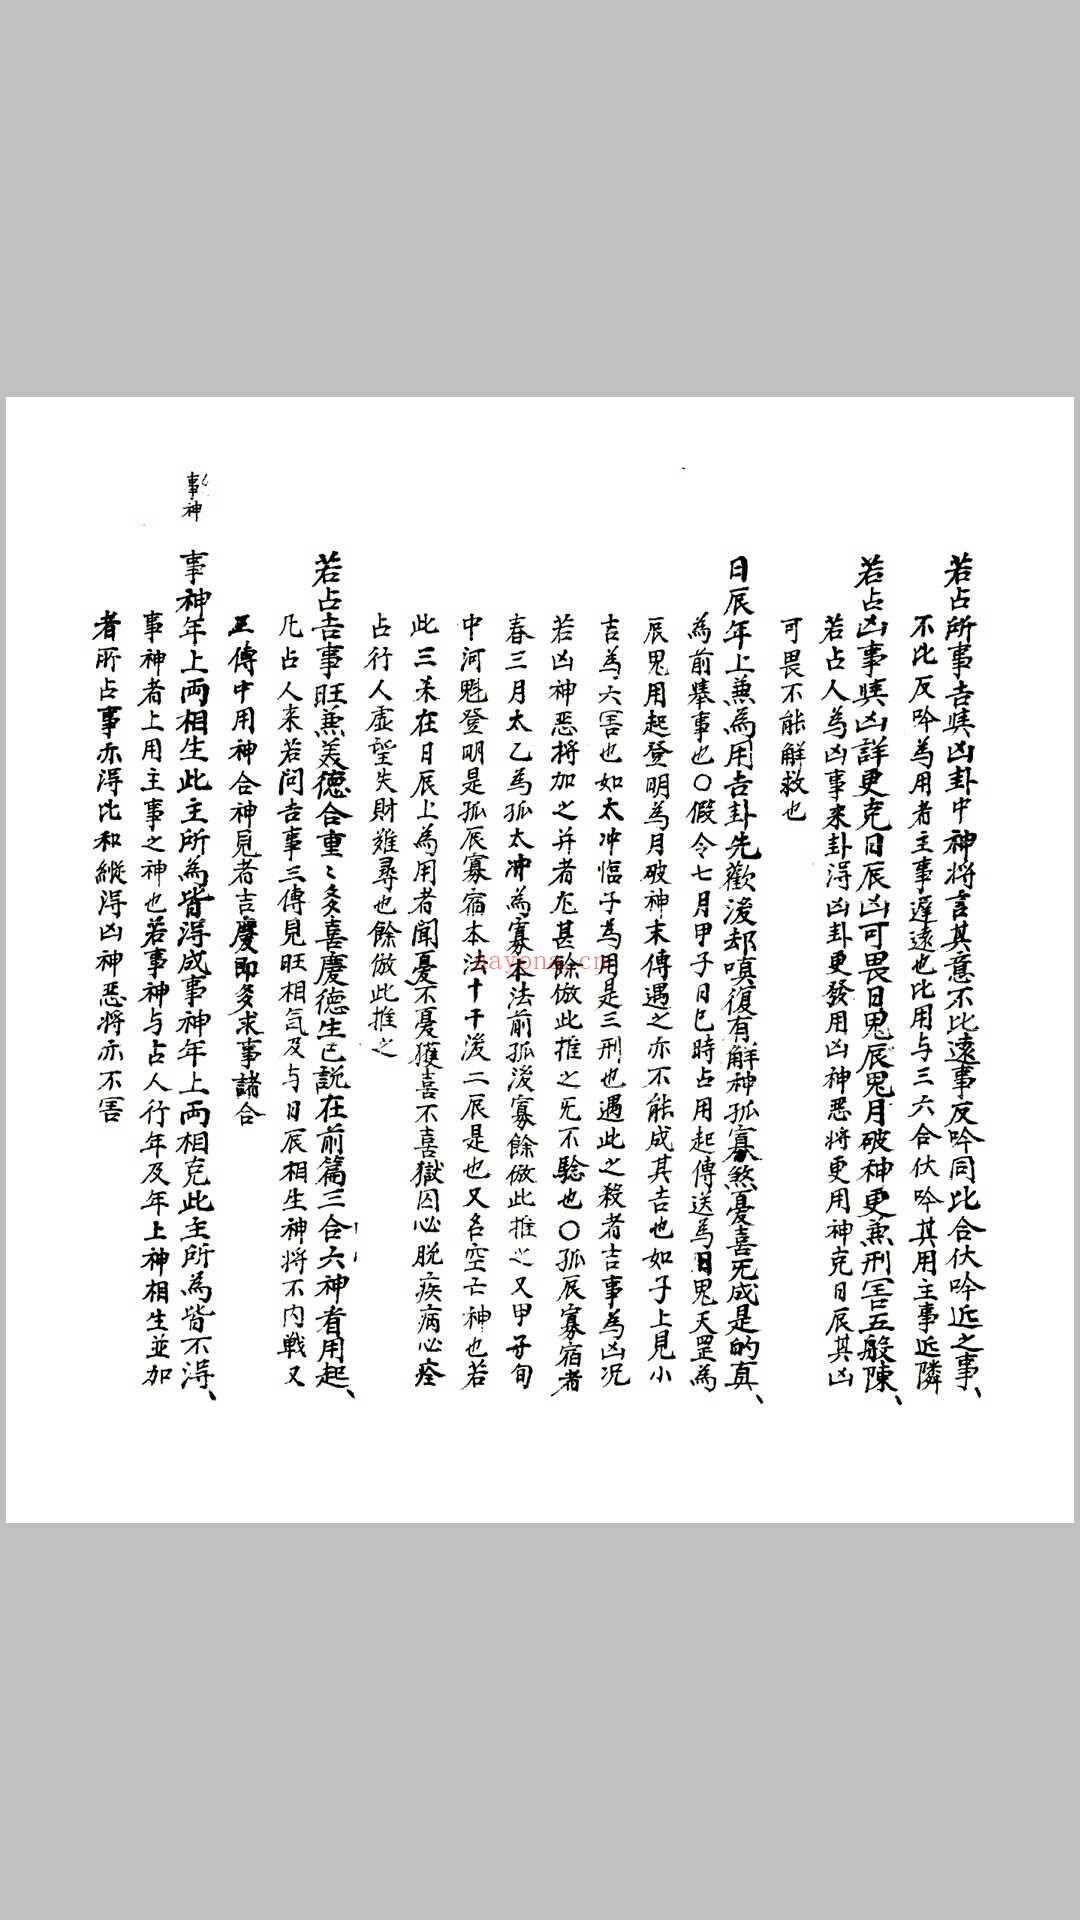 若占所事吉與凶卦中神將言其意不比遠事反吟同比合伏吟近之事、
不比反吟為用者主事遲遠也比用与三六合伏吟其用主事近隣
若占凶事與凶詳更克日辰凶可畏日鬼辰鬼月破神更兼刑害五般陳、
若占人為凶事来卦淂凶卦更發用凶神恶將更用神克日辰其凶
可畏不能解救也
日辰年上兼為用吉卦先歡後却嗔復有解神孤寡煞憂喜旡成是的真、
為前擧事也〇假令七月甲子日巳時占用起傳送為日鬼天罡為
辰鬼用起登明為月破神末傳遇之亦不能成其吉也如子上見小
吉為六害也如太冲臨子為用是三刑也遇此之殺者吉事為凶况
若凶神恶将加之并者尤甚餘倣此推之旡不騐也〇孤辰寡宿者
春三月太乙為孤太冲為寡本法前孤後寡餘倣此推之又甲子旬
中河魁登明是孤辰寡宿本法十干後二辰是也又名空亡神也若
此三杀在日辰上為用者聞憂不憂獲喜不喜獄囚心脱疾病心痊
占行人虚望失財難尋也餘倣此推之
若占吉事旺兼美德合重〻多喜慶德生已説在前篇三合六神者用起、
凡占人来若问吉事三傳見旺相気及与日辰相生神将不内戦又
三傳中用神合神見者吉慶即多求事諸合
事神
事神年上両相生此主所為皆淂成事神年上両相克此主所為皆不淂、
事神者上用主事之神也若事神与占人行年及年上神相生並加
者所占事亦淂比和縦淂凶神恶将亦不害
nayona.cn